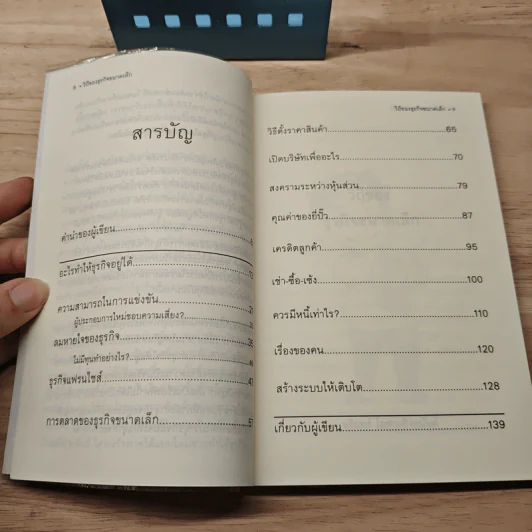 8 • วิถีของธุรกิจขนาดเล็ก
สารบัญ
คำนำของผู้เขียน
อะไรทำให้ธุรกิจอยู่ได้
ความสามารถในการแข่งขัน
ผู้ประกอบการใหม่ชอบความเสี่ยง?
ลมหายใจของธุรกิจ
ไม่มีทุนทำอย่างไร?
ธุรกิจแฟรนไชส์
การตลาดของธุรกิจขนาดเล็ก 57
วิถีของธุรกิจขนาดเล็ก • 9
วิธีตั้งราคาสินค้า 65
เปิดบริษัทเพื่ออะไร 70
สงครามระหว่างหุ้นส่วน 79
คุณค่าของยี่ปั๊ว 87
เครดิตลูกค้า 95
เช่า-ซื้อ-เซ้ง 100
ควรมีหนี้เท่าไร? 110
เรื่องของคน 120
สร้างระบบให้เติบโต 128
เกี่ยวกับผู้เขียน 139